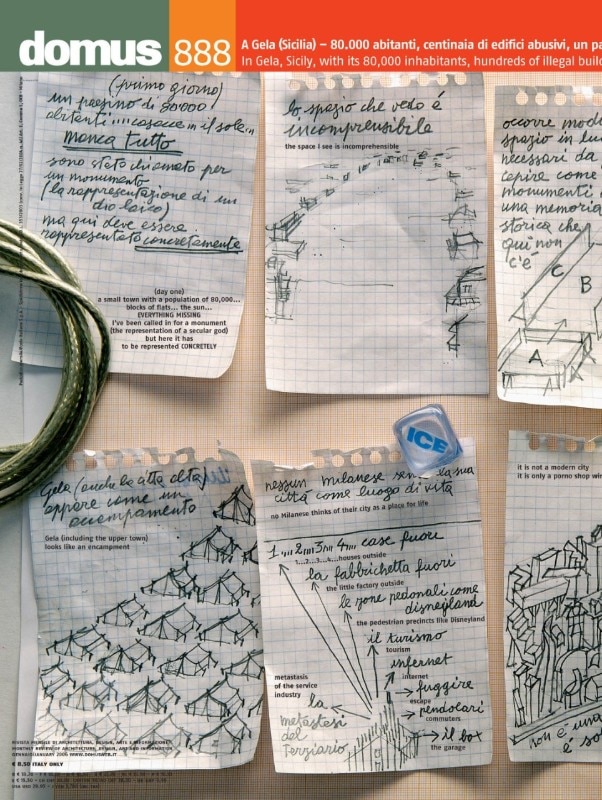 domus
888
A Gela (Sicilia) – 80.000 abitanti, centinaia di edifici abusivi, un
In Gela, Sicily, with its 80,000 inhabitants, hundreds of illegal
(primo giorno)
un paesino di 80000
abitanti.... casacce... il sole...
manca tutto
sono stato chiamato per
un monumento
(la rappresentazione di un
dio laico)
ma qui deve essere
rappresentato concretamente
(day one)
a small town with a population of 80,000...
blocks of flats... the sun...
EVERYTHING MISSING
I've been called in for a monument
(the representation of a secular god)
but here it has
to be represented CONCRETELY
lo spazio che vedo è
incomprensibile
the space I see is incomprehensible
occorre
spazio in
necessari da
capire come
monumenti
una memoria
storica che
qui non
c'è
C
B
A
Gela (anche la città alta)
appare come un
accampamento
Gela (including the upper town)
looks like an encampment
ICE
nessun milanese la sua
città come luogo di vita
no Milanese thinks of their city as a place for life
1,,, 2,,, 3,,, 4,,, case fuori
1...2...3...4...houses outside
la fabbrichetta fuori
the little factory outside
le zone pedonali come
disneyland
the pedestrian precincts like Disneyland
il turismo
tourism
internet
internet
fuggire
escape
pendolari
commuters
il box
the garage
metastasis
of the service
industry
la
metastasi
del
terziario
it is not a modern city
it is only a porno shop
non è una
è so
RIVISTA MENSILE DI ARCHITETTURA, DESIGN, ARTE E INFORMAZIONE
MONTHLY REVIEW OF ARCHITECTURE, DESIGN, ART AND INFORMATION
GENNAIO/JANUARY 2006 WWW.DOMUSWEB.IT
€ 8,50 ITALY ONLY